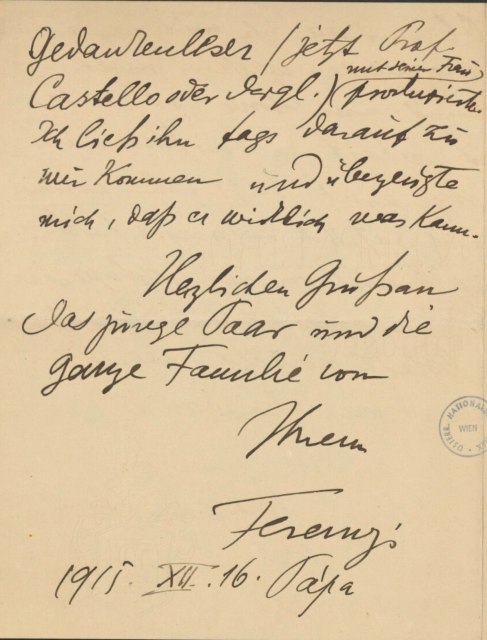 Gedankenleser (jetzt Prof.
mit seiner Frau
Castello oder dergl.) produzierte.
Ich ließ ihn tags darauf zu
mir kommen und überzeugte
mich, daß er wirklich was kann.
Herzlichen Gruß an
das junge Paar und die
ganze Familie von
Ihrem
Ferenczi
1915. XII. 16. Pápa
ÖSTERR. NATIONAL
WIEN